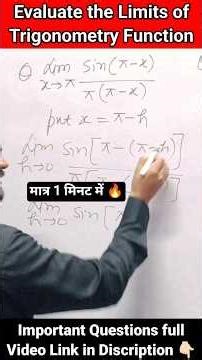 Evaluate the Limits of
Trigonometry Function
Q lim x→π sin(π-x) / π(π-x)
put x = π-h
lim h→0 sin[π-(π-h)]
मात्र 1 मिनट में 🔥
lim h→0 sin[π
Important Questions full
Video Link in Discription 👇🏻